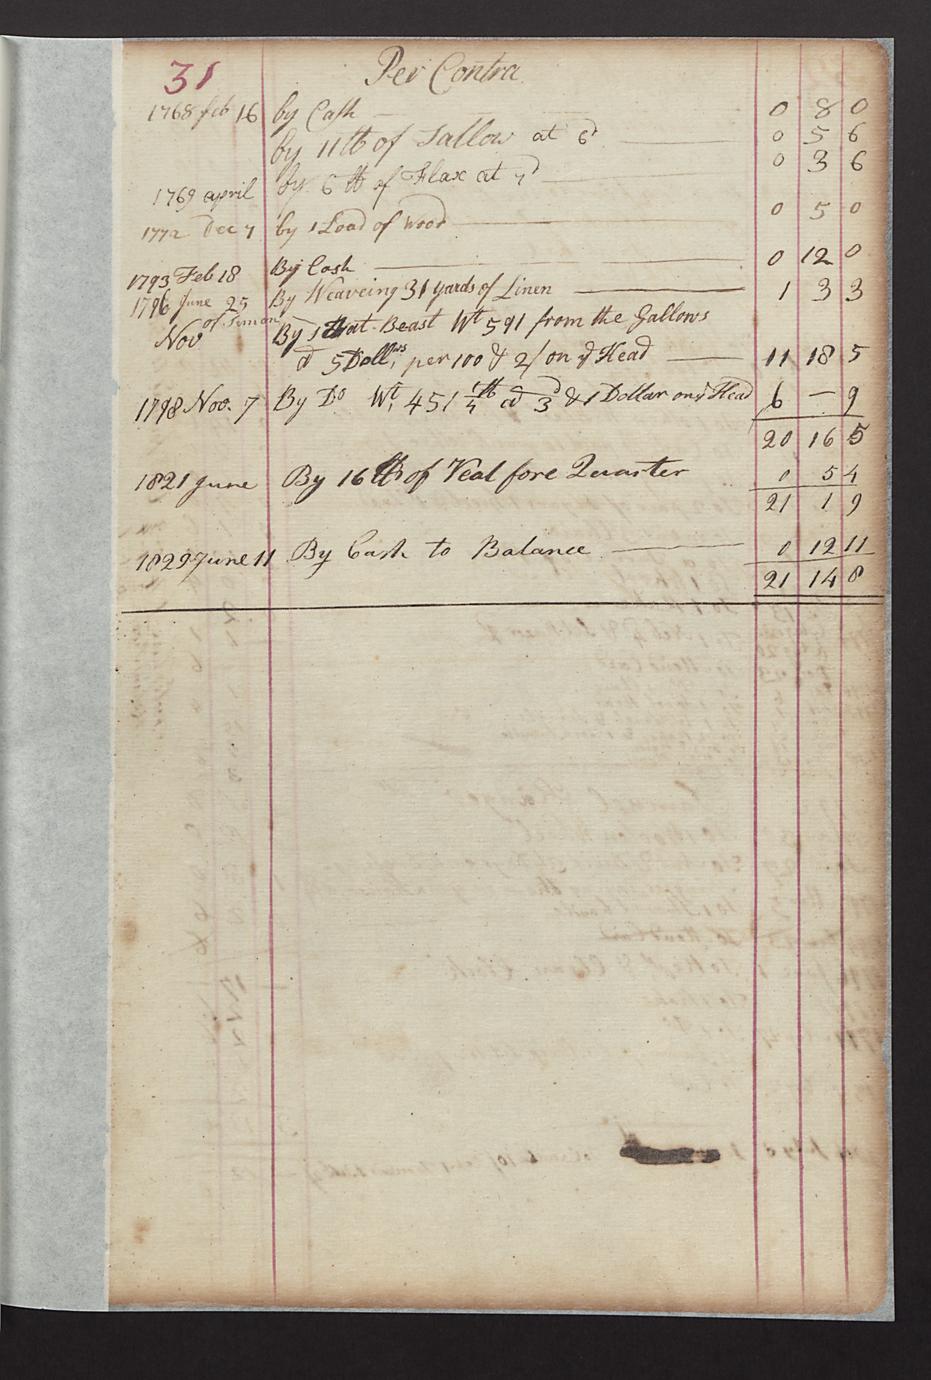 31 Per Contra
1768 feb 16 by Cash 0 8 0
by 11 lb of Tallow at 6d 0 5 6
1769 april by 6 lb of Flax at 7d 0 3 6
1772 Dec 7 by 1 Load of Wood 0 5 0
1793 Feb 18 By Cash 0 12 0
1796 June 25 By Weaveing 31 yards of Linen 1 3 3
Nov of Simon By 1 Beast Wt 591 from the Gallows
@ 5 Dolls per 100 & 2/ on ye Head 11 18 5
1798 Nov. 7 By Do Wt 451 lb @ 3d & 1 Dollar on ye Head 6 — 9
20 16 5
1821 June By 16 lb of Veal fore Quarter 0 5 4
21 1 9
1829 June 11 By Cash to Balance 0 12 11
21 14 8